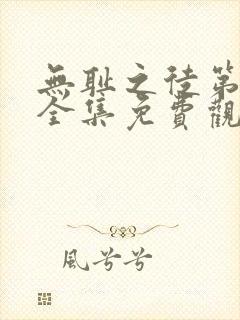 無耻之徒第
全集免費觀
風兮兮